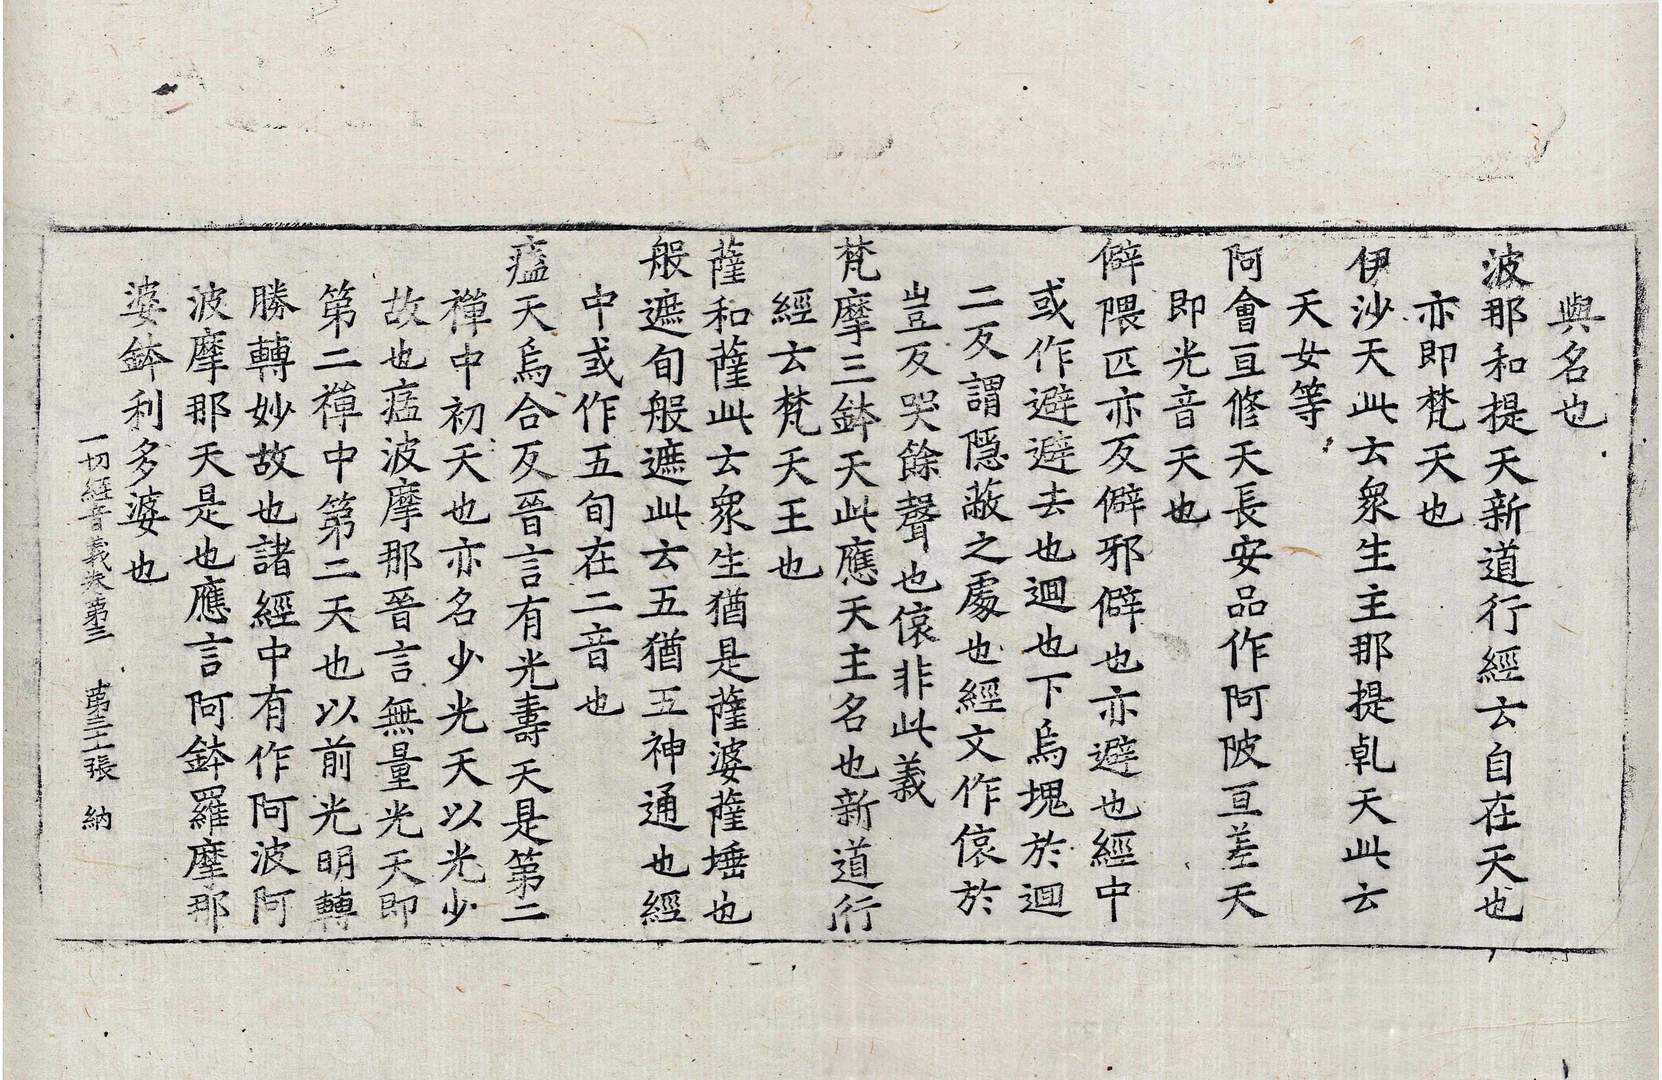 與名也
波那和提天新道行經云自在天也
亦即梵天也
伊沙天此云衆生主那提乹天此云
天女等
阿會亘修天長安品作阿陂亘差天
即光音天也
僻隈匹亦反僻邪僻也亦避也經中
或作避避去也迴也下烏塊於迴
二反謂隱蔽之處也經文作偯於
豈反哭餘聲也偯非此義
梵摩三鉢天此應天主名也新道行
經云梵天王也
薩和薩此云衆生猶是薩婆薩埵也
般遮旬般遮此云五猶五神通也經
中或作五旬在二音也
瘟天烏合反晉言有光壽天是第二
禪中初天也亦名少光天以光少
故也瘟波摩那晉言無量光天即
第二禪中第二天也以前光明轉
勝轉妙故也諸經中有作阿波阿
波摩那天是也應言阿鉢羅摩那
婆鉢利多婆也
一切經音義卷第三 第三二張 納